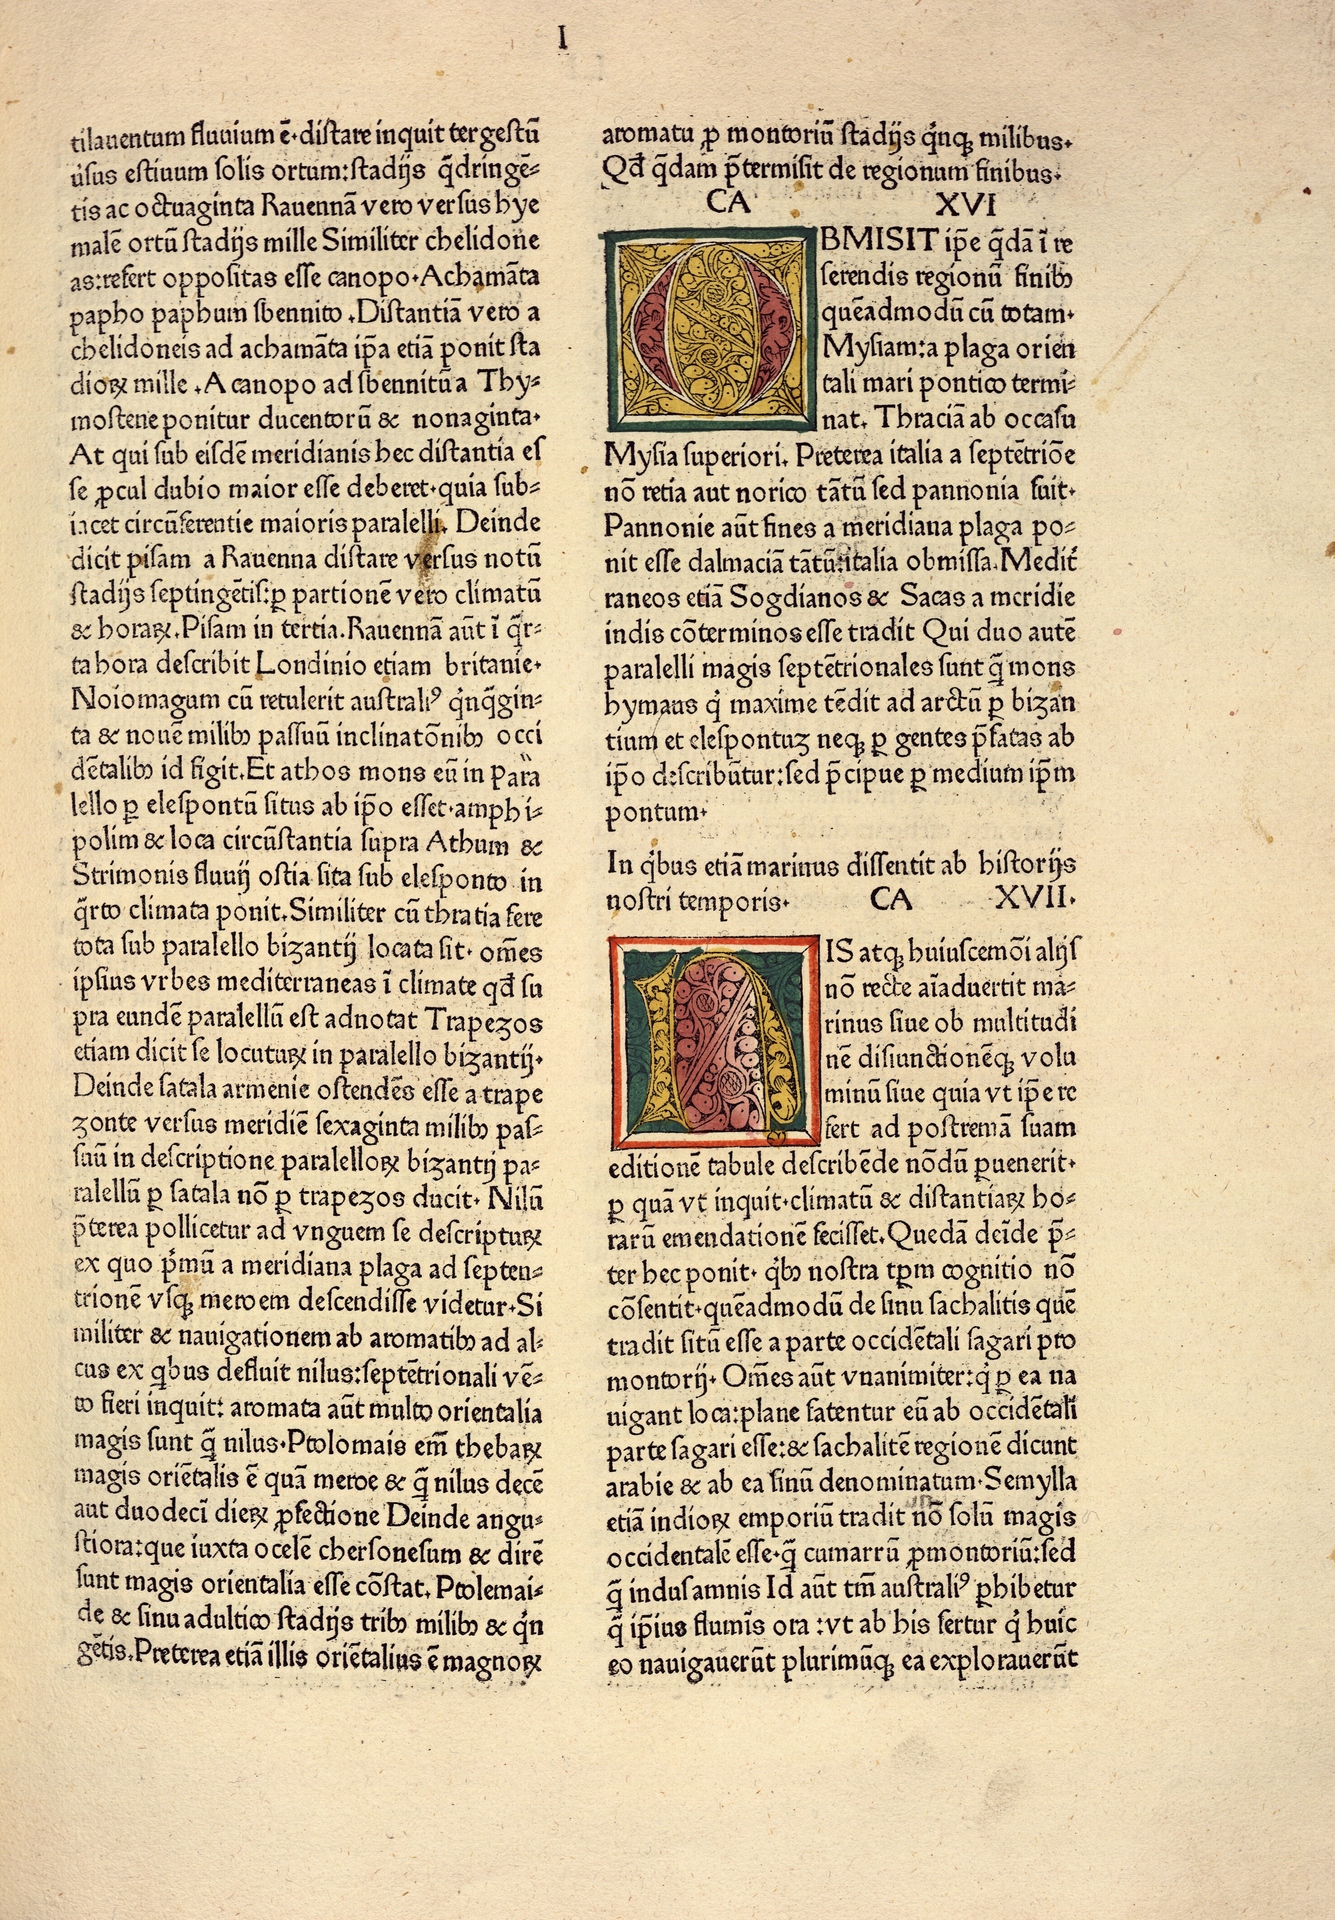 I
tilauentum fluuium ē·distare inquit tergestū
ůsus estiuum solis ortum:stadijs q̄dringē-
tis ac octuaginta Rauennā vero versus hye
malē ortū stadijs mille Similiter chelidone
as:refert oppositas esse canopo·Achamāta
papho paphum sbennito.Distantiā vero a
chelidoneis ad achamāta ip̄a etiā ponit sta
dioꝝ mille.A canopo ad sbennitū a Thy-
mostene ponitur ducentorū & nonaginta·
At qui sub eisdē meridianis hec distantia es
se ꝓcul dubio maior esse deberet·quia sub-
iacet circūferentie maioris paralelli. Deinde
dicit pisam a Rauenna distare versus notū
stadijs septingētis:ꝑ partionē vero climatū
& horaꝝ.Pisam in tertia.Rauennā aūt ī q̄r-
ta hora describit Londinio etiam britanie·
Noiomagum cū retulerit australiꝰ q̇nq̄gin-
ta & nouē milibꝫ passuū inclinatōnibꝫ occi
dētalibꝫ id figit.Et athos mons eū in para
lello ꝑ elespontū situs ab ip̄o esset·amphi-
polim & loca circūstantia supra Athum &
Strimonis fluuij ostia sita sub elesponto in
q̄rto climata ponit.Similiter cū thratia fere
tota sub paralello bizantij locata sit· om̄es
ipsius vrbes mediterraneas ī climate qđ su
pra eundē paralellū est adnotat Trapezos
etiam dicit se locutuꝝ in paralello bizantij·
Deinde satala armenie ostendēs esse a trape
zonte versus meridiē sexaginta milibꝫ pas-
suū in descriptione paralelloꝝ bizantij pa-
ralellū ꝑ satala nō ꝑ trapezos ducit· Nilū
p̄terea pollicetur ad vnguem se descriptuꝝ
ex quo ṗmū a meridiana plaga ad septen-
trionē vsqꝫ meroem descendisse videtur·Si
militer & nauigationem ab aromatibꝫ ad al-
cus ex q̇bus defluit nilus:septētrionali vē-
to fieri inquit: aromata aūt multo orientalia
magis sunt q̄ nilus·Ptolomais em̄ thebaꝝ
magis oriētalis ē quā meroe & q̄ nilus decē
aut duodecī dieꝝ ꝓfectione Deinde angu-
stiora:que iuxta ocelē chersonesum & dirē
sunt magis orientalia esse cōstat. Ptolemai-
de & sinu adultico stadijs tribꝫ milibꝫ & q̇n
gētis.Preterea etiā illis oriētalius ē magnoꝝ
aromatu ꝓ montoriū stadijs q̇nqꝫ milibus·
Qđ q̄dam p̄termisit de regionum finibus·
CA XVI
BMISIT ip̄e q̄dā ī re
ferendis regionū finibꝫ
quēadmodū cū totam·
Mysiam:a plaga orien
tali mari pontico termi-
nat. Thraciā ab occasu
Mysia superiori. Preterea italia a septētriōe
nō retia aut norico tātū sed pannonia fuit·
Pannonie aūt fines a meridiana plaga po-
nit esse dalmaciā tātū:italia obmissa.Medit̄
raneos etiā Sogdianos & Sacas a meridie
indis cōterminos esse tradit Qui duo autē
paralelli magis septētrionales sunt q̄ mons
hymaus q̇ maxime tēdit ad arctū ꝑ bizan
tium et elespontuꝫ neqꝫ ꝑ gentes p̄fatas ab
ip̄o describūtur:sed p̄cipue ꝑ medium ip̄m
pontum·
In q̇bus etiā marinus dissentit ab historijs
nostri temporis· CA XVII·
IS atqꝫ huiuscemōi alijs
nō recte aīaduertit ma-
rinus siue ob multitudi
nē disiunctionēqꝫ volu
minū siue quia vt ip̄e re
fert ad postremā suam
editionē tabule describēde nōdū ꝑuenerit·
ꝑ quā vt inquit·climatū & distantiaꝝ ho-
rarū emendationē fecisset.Quedā deīde p̄-
ter hec ponit· q̇bꝫ nostra tꝑm cognitio nō
cōsentit·quēadmodū de sinu sachalitis quē
tradit sitū esse a parte occidētali sagari pro
montorij· Om̄es aūt vnanimiter:q̇ ꝑ ea na
uigant loca:plane fatentur eū ab occidētali
parte sagari esse:& sachalitē regionē dicunt
arabie & ab ea sinū denominatum·Semylla
etiā indioꝝ emporiū tradit nō solū magis
occidentalē esse·q̄ cumarrū ꝓmontoriū:sed
q̄ indus amnis Id aūt tm̄ australiꝰ ꝑhibetur
q̄ ip̄ius flumīs ora :vt ab his fertur q̇ huic
eo nauigauerūt plurimūqꝫ ea explorauerūt